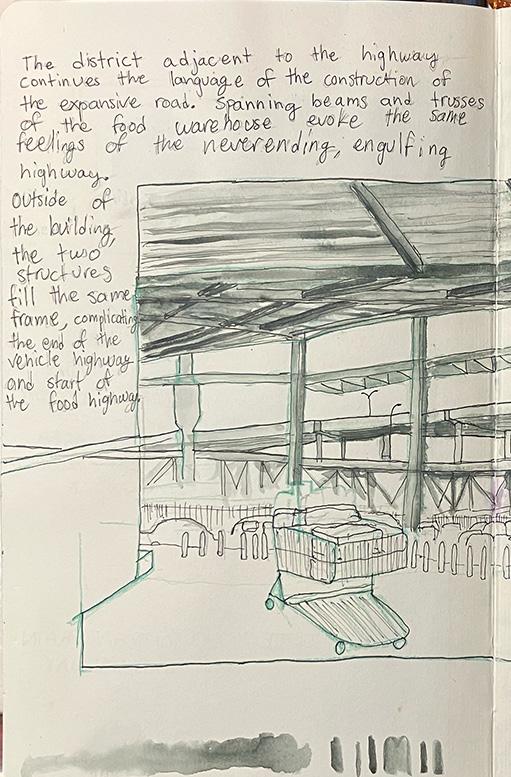 The district adjacent to the highway
continues the language of the construction of
the expansive road. Spanning beams and trusses
of the food warehouse evoke the same
feelings of the neverending, engulfing
highway.
Outside of
the building,
the two
structures
fill the same
frame, complicating
the end of the
vehicle highway
and start of
the food highway.